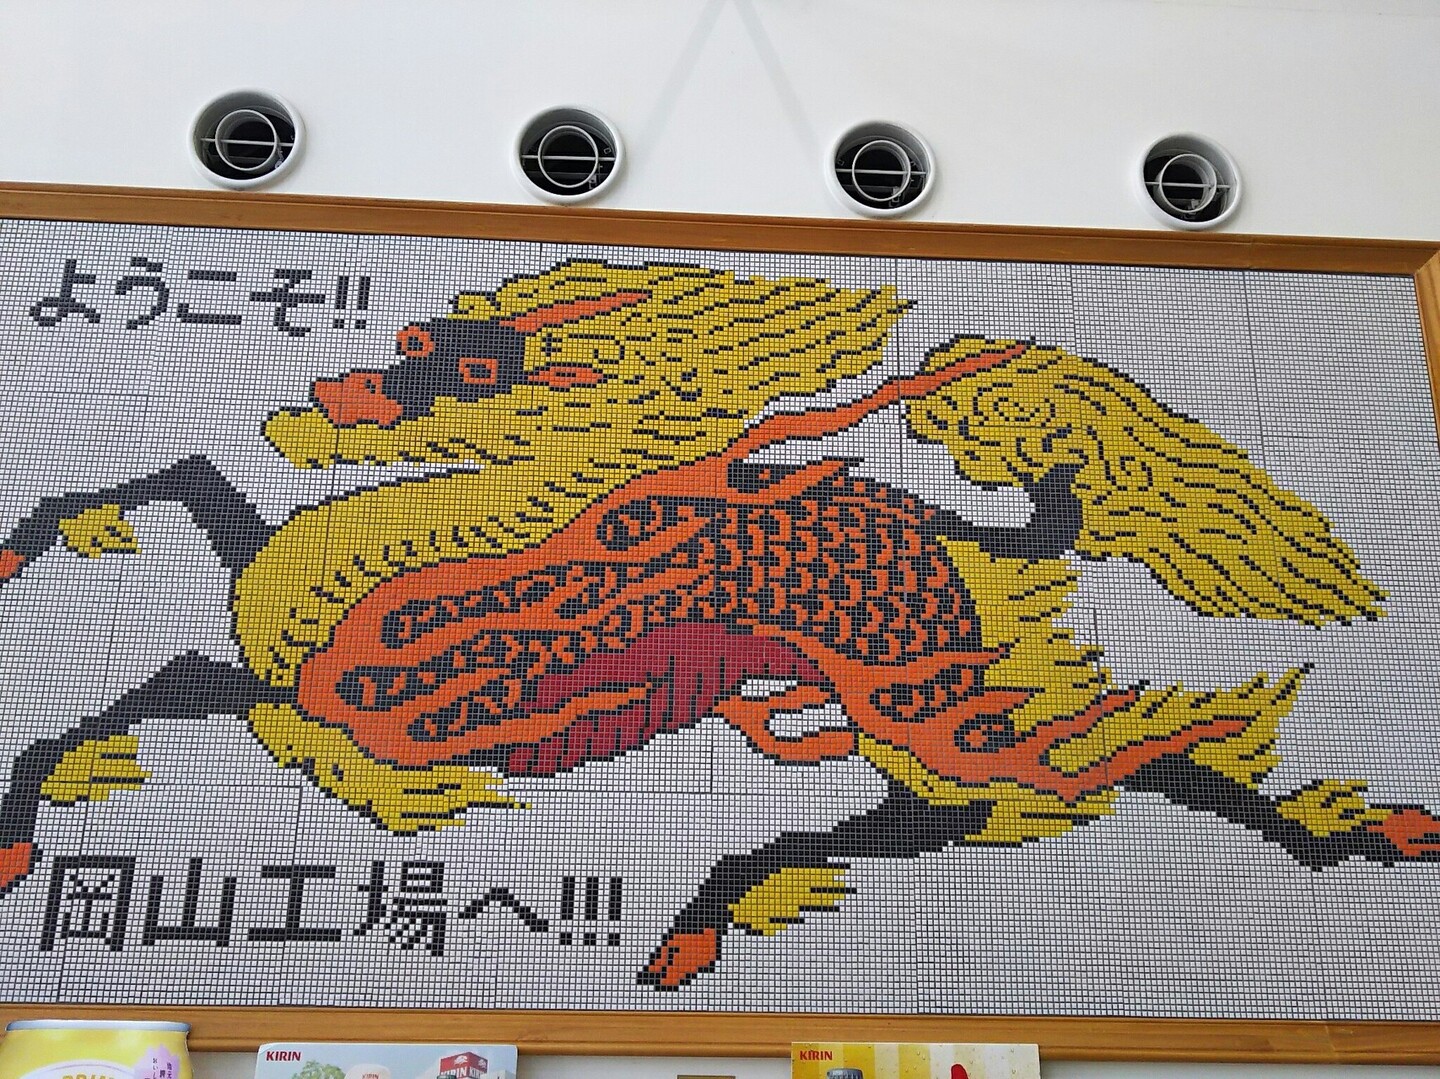 ようこそ!!
岡山工場へ!!!
KIRIN
KIRIN
KIRIN